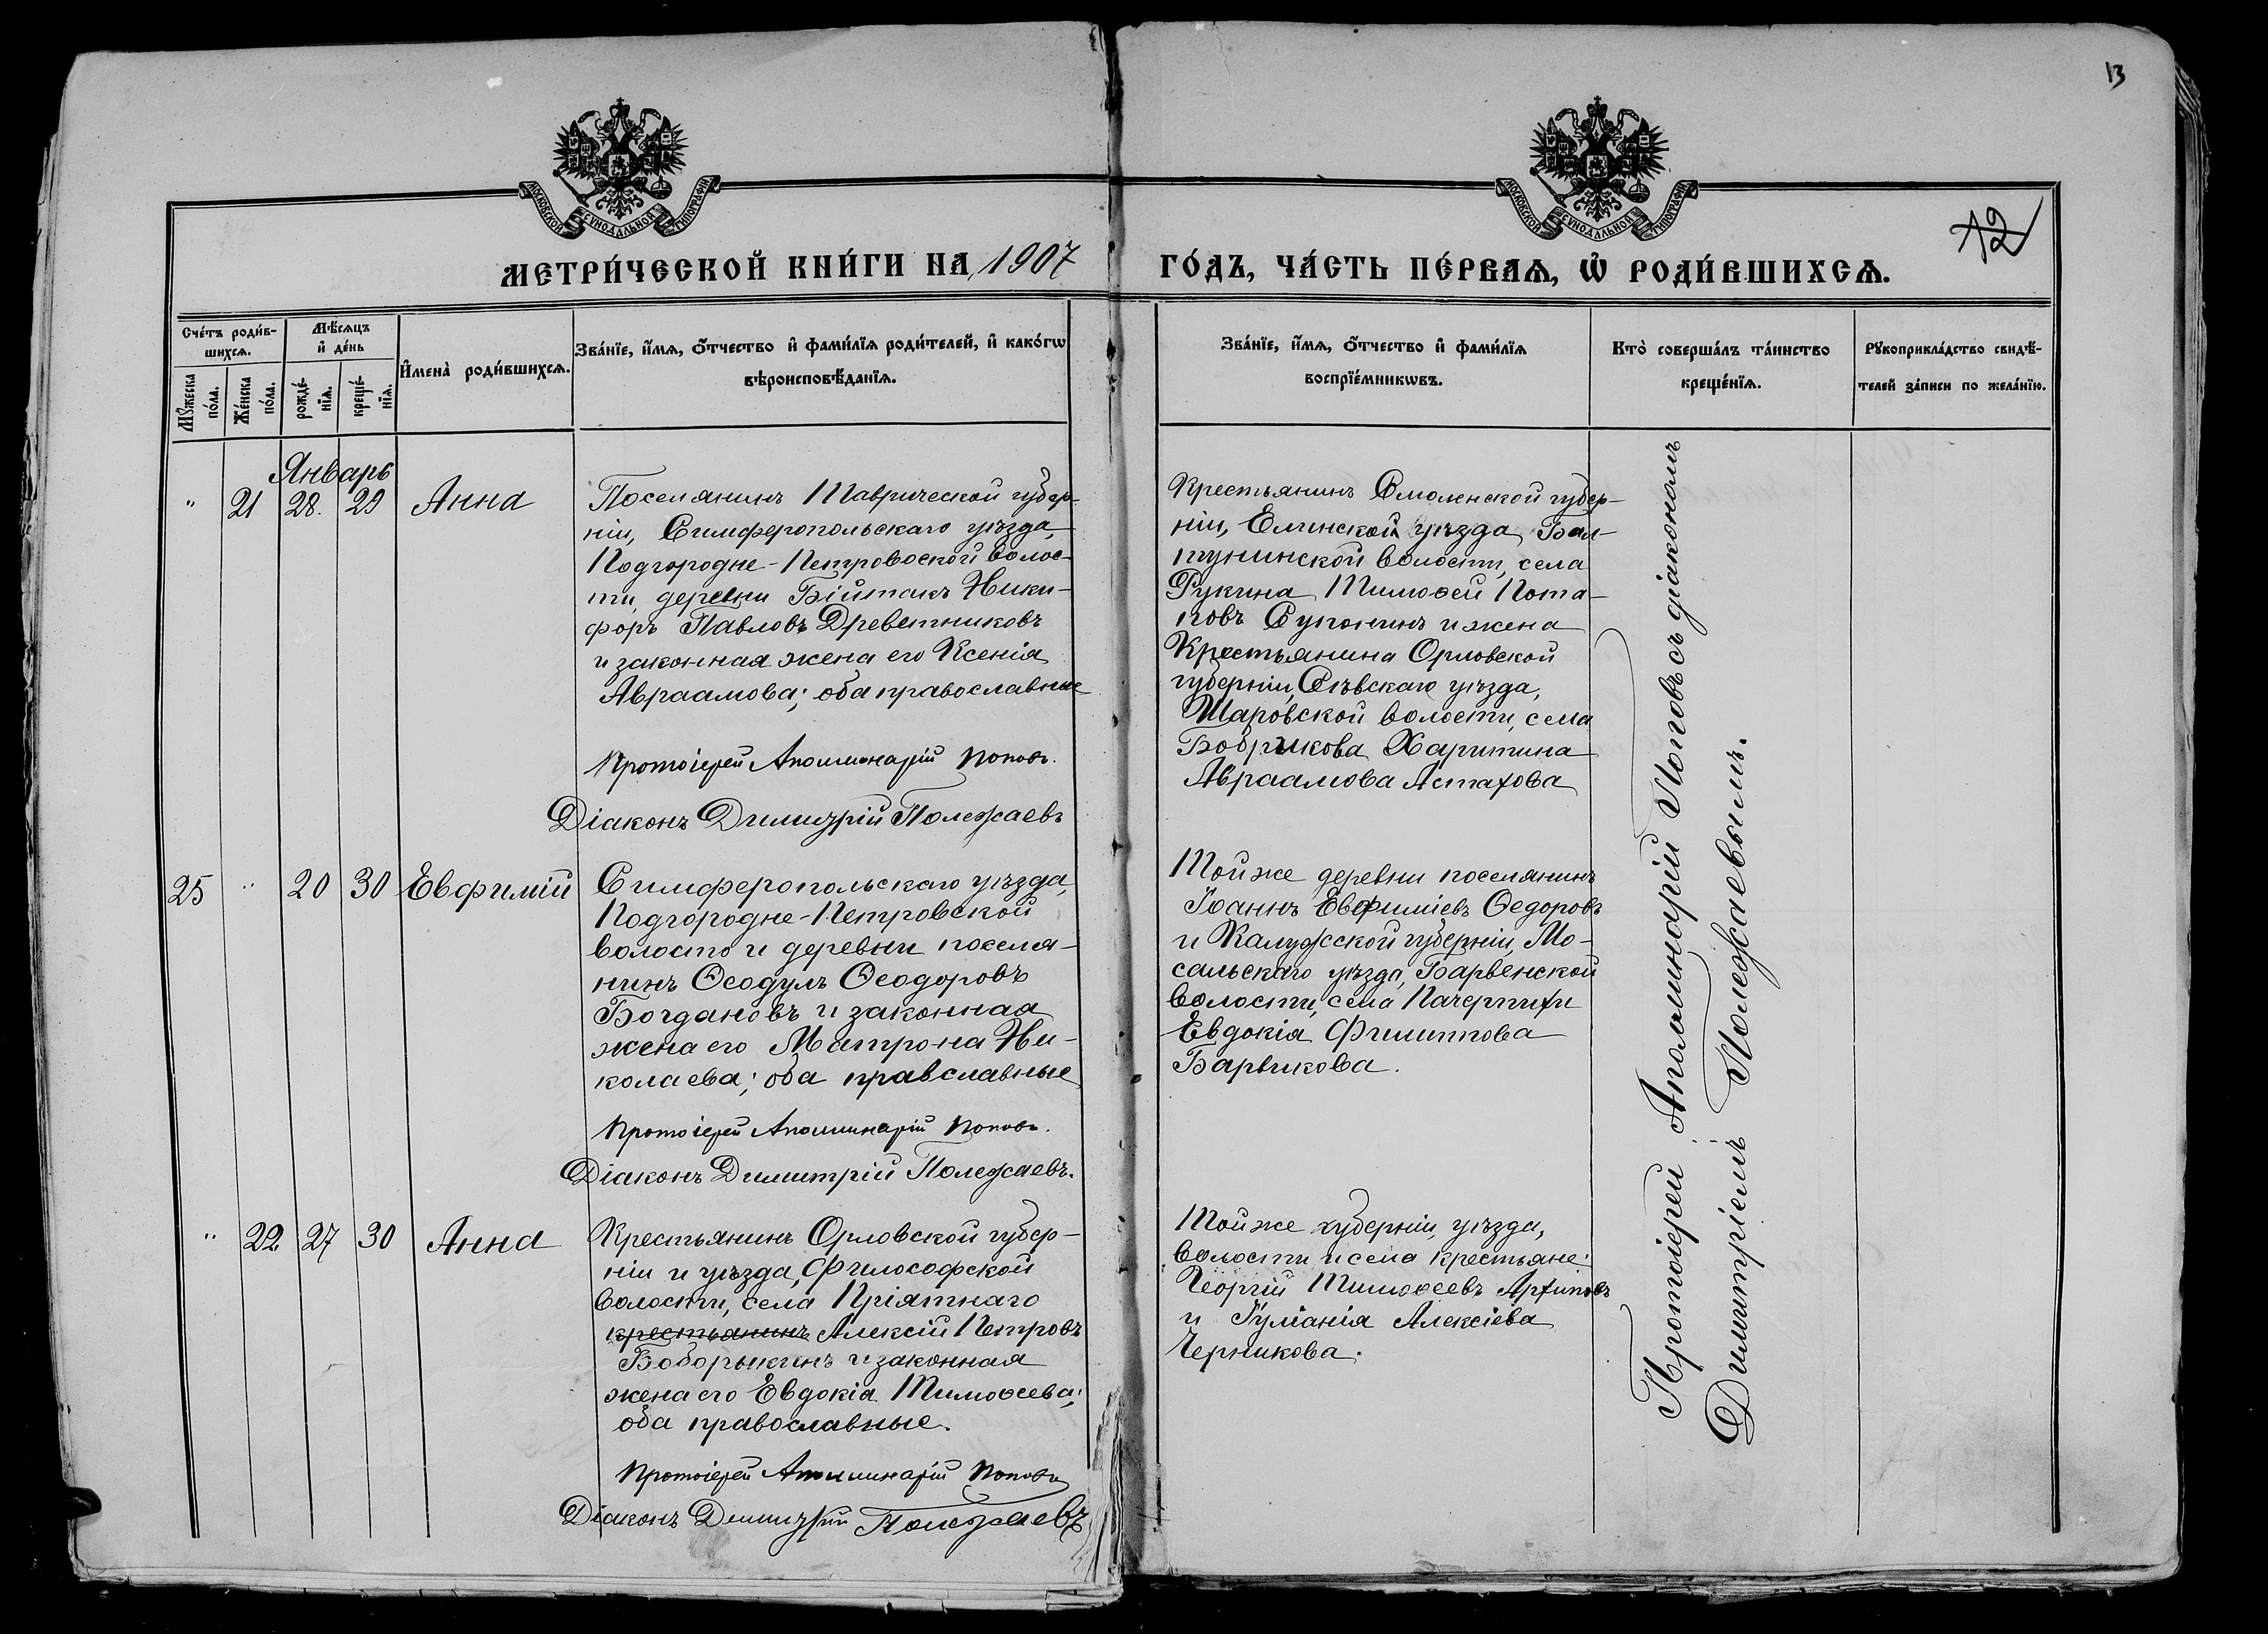 13
МОСКОВСКОЙ СУНОДАЛЬНОЙ ТИПОГРАФІИ
МОСКОВСКОЙ СУНОДАЛЬНОЙ ТИПОГРАФІИ
12
МЕТРИ́ЧЕСКОЙ КНИ́ГИ НА 1907 ГО́ДЪ, ЧА́СТЬ ПЕ́РВАѦ, Ѡ҆ РОДИ́ВШИХСѦ.
Сче́тъ роди́в-
шихсѧ.
Мꙋ́жеска
по́ла.
Же́нска
по́ла.
Мѣ́сѧцъ
и҆ де́нь
рожде́-
нїѧ.
креще́-
нїѧ.
И҆мена̀ роди́вшихсѧ.
Зва́нїе, и҆́мѧ, ѻ҆́тчество и҆ фами́лїѧ роди́телей, и҆ како́гѡ
вѣроисповѣ́данїѧ.
Зва́нїе, и҆́мѧ, ѻ҆́тчество и҆ фами́лїѧ
воспрїе́мникѡвъ.
Кто̀ соверша́лъ та́инство
креще́нїѧ.
Рꙋкоприкла́дство свидѣ́-
телей за́писи по жела́нїю.
Январь
" 21 28. 29 Анна
Поселянинъ Таврической губер-
ніи, Симферопольскаго уѣзда,
Подгородне-Петровоской волос-
ти, деревни Бійтакъ Ники-
форъ Павловъ Древетниковъ
и законная жена его Ксенія
Авраамова; оба православные
Протоіерей Аполлинарій Поповъ.
Діаконъ Димитрій Полежаевъ
Крестьянинъ Смоленской губер-
ніи, Елнинской уѣзда, Бал-
тунинской волости, села
Рукина Тимоѳей Пота-
повъ Супонинъ и жена
Крестьянина Орловской
губерніи, Сѣвскаго уѣзда,
Шаровской волости, села
Бобрикова Харитина
Авраамова Астахова
25 " 20 30 Евфимій
Симферопольскаго уѣзда,
Подгородне-Петровской
волости и деревни поселя-
нинъ Ѳеодулъ Ѳеодоровъ
Богдановъ и законная
жена его Матрона Ни-
колаева; оба правславные
Протоіерей Аполлинарій Поповъ.
Діаконъ Димитрій Полежаевъ.
Той же деревни поселянинъ
Іоаннъ Евфиміевъ Ѳедоровъ
и Калужской губерніи, Мо-
сальскаго уѣзда, Барвенской
волости, села
Евдокія Филиппова
Барвикова.
" 22 27 30 Анна
Крестьянинъ Орловской губер-
ніи и уѣзда, Философской
волости, села Пріятнаго
крестьянинъ Алексій Петровъ
Боборыкинъ и законная
жена его Евдокія Тимоѳеева;
оба православные.
Протоіерей Аполлинарій Поповъ
Діаконъ Димитрій Полежаевъ
Той же губерніи, уѣзда,
волости и села крестьяне:
Георгій Тимоѳеевъ Архиповъ
и Іуліанія Алексіева
Черникова.
Протоіерей Аполлинарій Поповъ съ діакономъ
Димитріемъ Полежаевымъ.